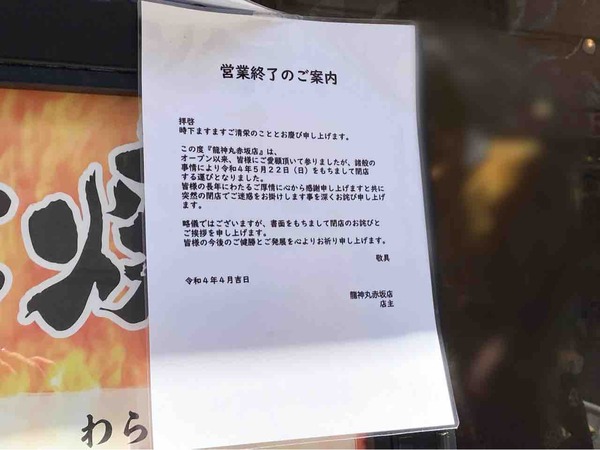 営業終了のご案内
拝啓
時下ますますご清栄のこととお慶び申し上げます。
この度『龍神丸赤坂店』は、
オープン以来、皆様にご愛顧頂いて参りましたが、諸般の
事情により令和4年5月22日(日)をもちまして閉店
する運びとなりました。
皆様の長年にわたるご厚情に心から感謝申し上げますと共に
突然の閉店でご迷惑をお掛けします事を深くお詫び申し上げ
ます。
略儀ではございますが、書面をもちまして閉店のお詫びと
ご挨拶を申し上げます。
皆様の今後のご健勝とご発展を心よりお祈り申し上げます。
敬具
令和4年4月吉日
龍神丸赤坂店
店主
わら